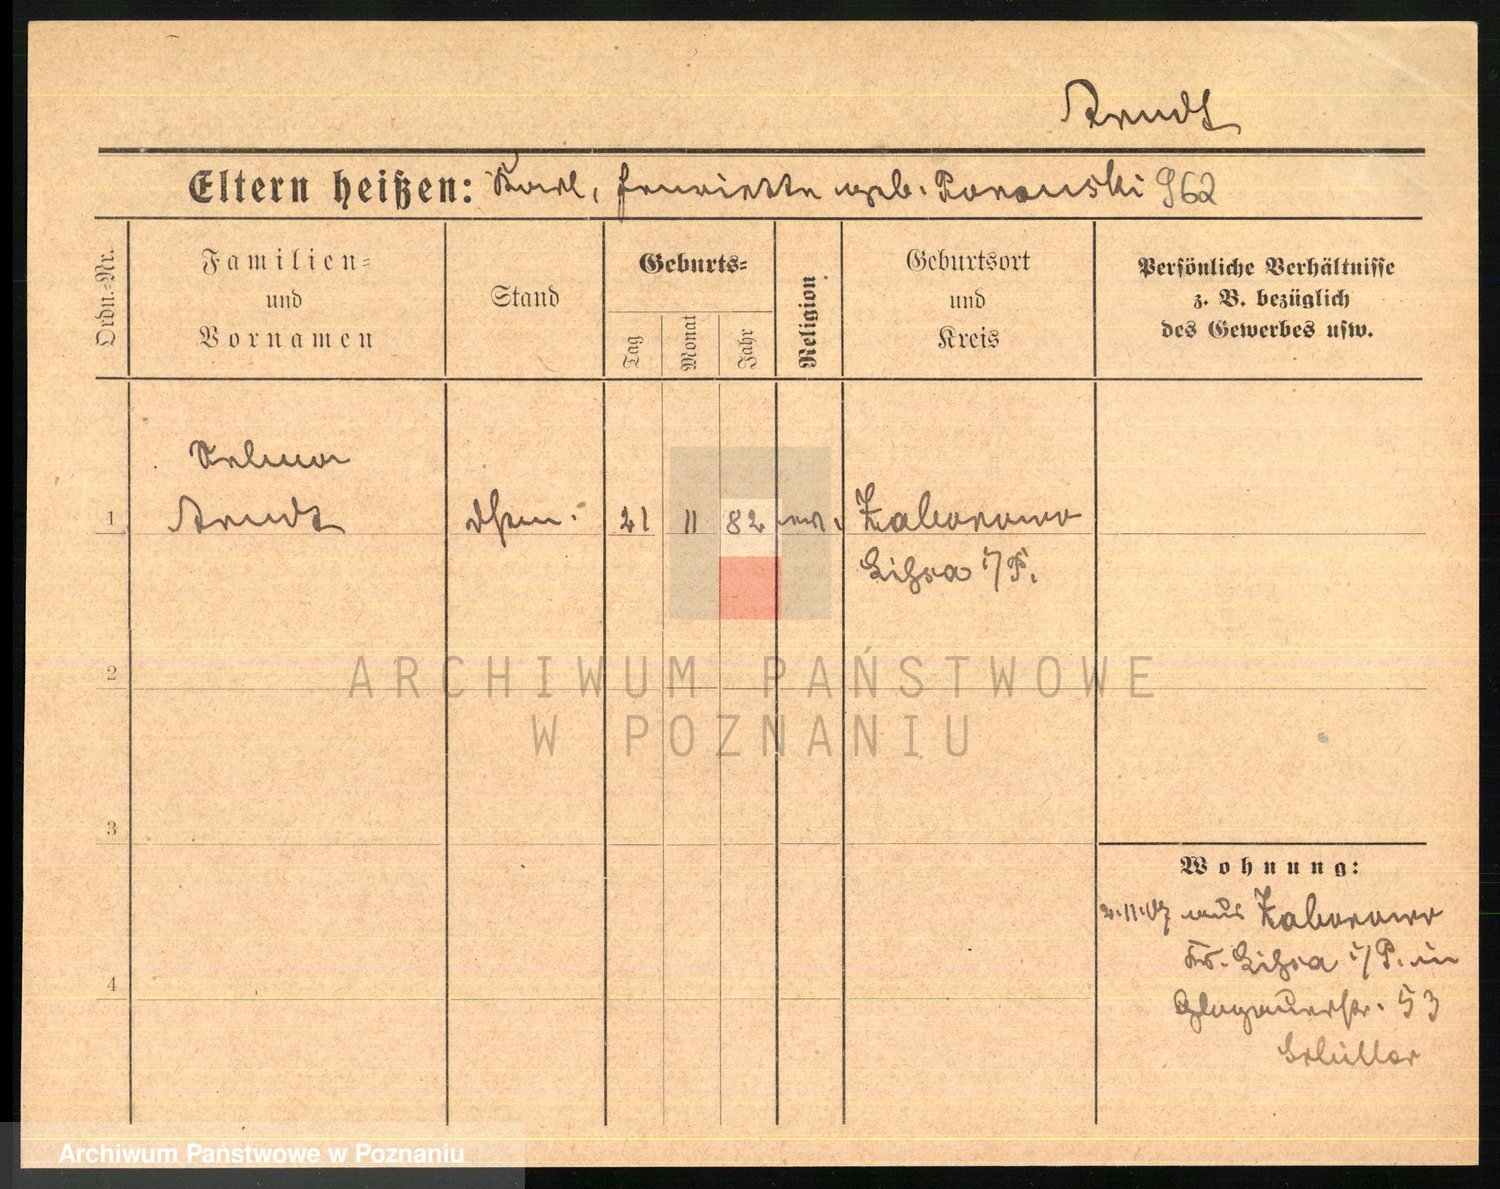 Arndt
Eltern heißen: Karl, Henriette geb. Poranski 962
Ordn.-Nr.
Familien- und Vornamen
Stand
Geburts-
Tag
Monat
Jahr
Religion
Geburtsort und Kreis
Persönliche Verhältnisse
z. B. bezüglich
des Gewerbes usw.
Selma
1 Arndt 21 11 82 ev. Zaborowo
Lissa i/P.
2
3
4
Wohnung:
aus Zaborowo
Kr. Lissa i/P. in
Glogauerstr. 53
ARCHIWUM PAŃSTWOWE
W POZNANIU
Archiwum Państwowe w Poznaniu